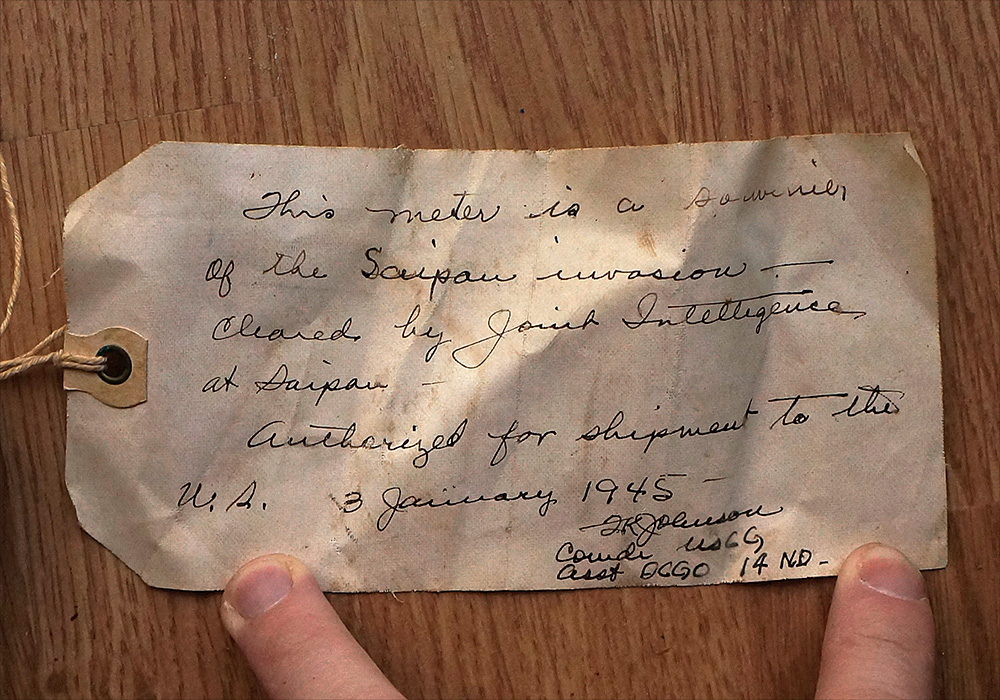 This meter is a souvenier
of the Saipan invasion —
Cleared by Joint Intelligence
at Saipan —
Authorized for shipment to the
U.S. 3 January 1945 —
Johnson
Comdr USCG
Asst DCGO 14 ND -